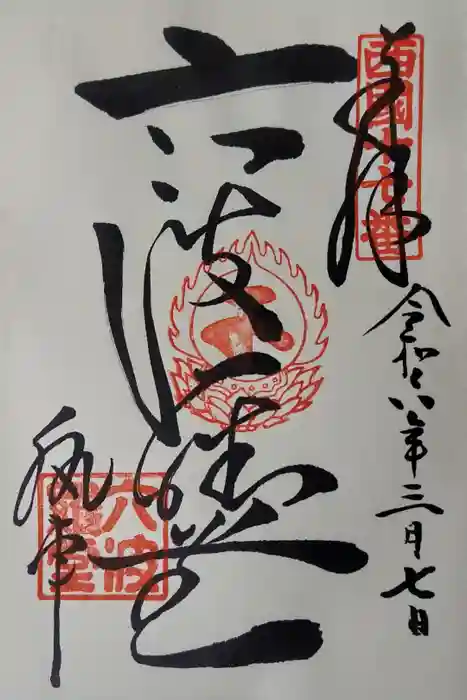 奉拝
西國十七番
令和六年三月七日
六波羅堂
執事
六波羅堂